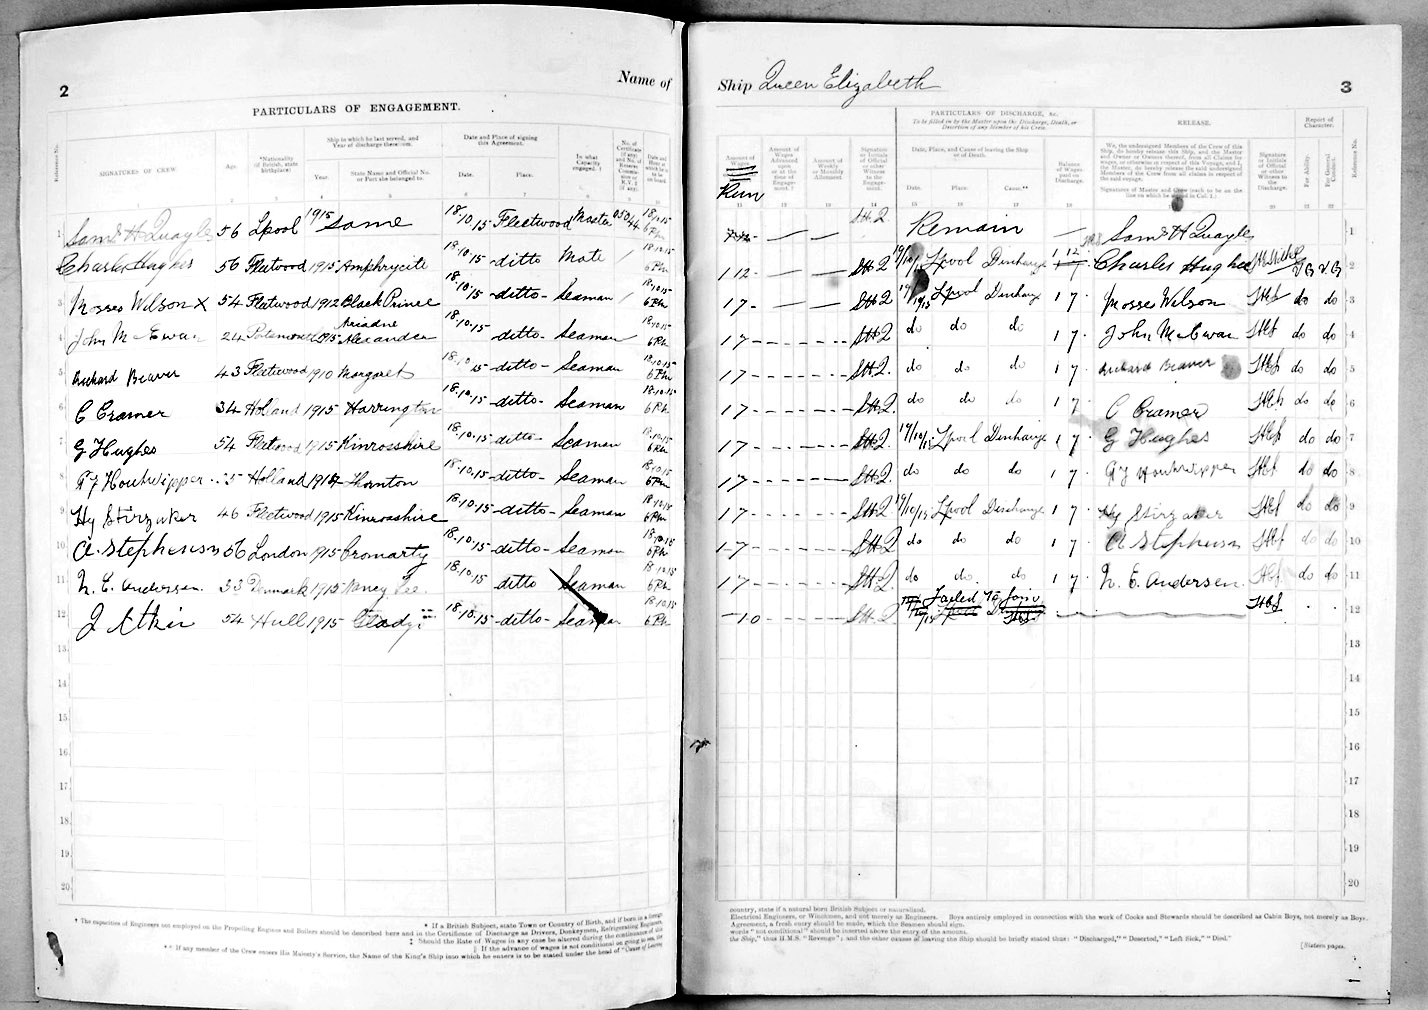 2
Name of
PARTICULARS OF ENGAGEMENT.
Reference No.
SIGNATURES OF CREW.
Age.
*Nationality (if British, state birthplace)
Ship in which he last served, and Year of discharge therefrom.
Year.
State Name and Official No. or Port she belonged to.
Date and Place of signing this Agreement.
Date.
Place.
In what Capacity engaged.
1 Saml H Quayle 56 Lpool 1915 Same 18/10/15 Fleetwood Master 030144 18.10.15 6 Pm
2 Charles Hughes 56 Fleetwood 1915 Amphrycite 18.10.15 ditto Mate 18.10.15 6 Pm
3 Mosses Wilson X 54 Fleetwood 1912 Black Prince 18.10.15 ditto- Seaman 18.10.15 6 Pm
4 John McEwan 24 Portsmouth 1915 Ariadne Alexander 18.10.15 ditto- Seaman 18.10.15 6 Pm
5 Richard Beaver 43 Fleetwood 1910 Margaret 18.10.15 ditto- Seaman 18.10.15 6 Pm
6 C Cramer 34 Holland 1915 Harrington 18.10.15 ditto- Seaman 18.10.15 6 Pm
7 G Hughes 54 Fleetwood 1915 Kinrosshire 18.10.15 ditto- Seaman 18.10.15 6 Pm
8 Houtwipper Holland Thornton 18.10.15 ditto- Seaman 18.10.15 6 Pm
9 Hy Stirzaker 46 Fleetwood 1915 Kinrosshire 18.10.15 ditto- Seaman 18.10.15 6 Pm
10 A. Stephenson 56 London 1915 Cromarty 18.10.15 ditto- Seaman 18.10.15 6 Pm
11 N. E. Andersen 33 Denmark 1915 Nancy Lee 18.10.15 ditto Seaman 18.10.15 6 Pm
12 J Atkin 54 Hull 1915 Gladys 18.10.15 ditto- Seaman 18.10.15 6 Pm
13
14
15
16
17
18
19
20
* If a British Subject, state Town or Country of Birth, and if born in a foreign
† The capacities of Engineers not employed on the Propelling Engines and Boilers should be described here and in the Certificate of Discharge as Drivers, Donkeymen, Refrigerating Engineers,
‡ Should the Rate of Wages in any case be altered during the continuance of this
** If any member of the Crew enters His Majesty's Service, the Name of the King's Ship into which he enters is to be stated under the head of "Cause of Leaving
Ship Queen Elizabeth
3
PARTICULARS OF DISCHARGE, &c.
To be filled in by the Master upon the Discharge, Death, or Desertion of any Member of his Crew.
RELEASE.
Report of Character.
Amount of Wages
Run
Amount of Wages Advanced upon, or at the time of Engagement.
Amount of Weekly or Monthly Allotment.
Signature or Initials of Official or Witness to the Engagement.
Date, Place, and Cause of leaving the Ship or of Death.
Date.
Place.
Cause.**
Balance of Wages paid on Discharge.
We, the undersigned Members of the Crew of this Ship, do hereby release this Ship, and the Master and Owner or Owners thereof, from all Claims for wages, or otherwise in respect of this Voyage, and I, the Master, do hereby release the said undersigned Members of the Crew from all claims in respect of the said voyage.
Signatures of Master and Crew (each to be on the line on which he signed in Col. 1.)
Signature or Initials of Official or other Witness to the Discharge.
For Ability.
For General Conduct.
Reference No.
Remain Saml H Quayle 1
1 12 19/10/15 Lpool Discharge 1 12 Charles Hughes V G V G 2
17 19/10/15 Lpool Discharge 1 7 Mosse Wilson do do 3
17 do do do 1 7 John McEwan do do 4
17 do do do 1 7 Richard Beaver do do 5
17 do do do 1 7 C Cramer do do 6
17 19/10/15 Lpool Discharge 1 7 G Hughes do do 7
17 do do do 1 7 Houtwipper do do 8
17 19/10/15 Lpool Discharge 1 7 Hy Stirzaker do do 9
17 do do do 1 7 A Stephenson do do 10
17 do do do 1 7 N. E. Andersen do do 11
10 Failed To Join 12
13
14
15
16
17
18
19
20
country, state if a natural born British Subject or naturalized.
Electrical Engineers, or Winchmen, and not merely as Engineers. Boys entirely employed in connection with the work of Cooks and Stewards should be described as Cabin Boys, not merely as Boys.
Agreement, a fresh entry should be made, which the Seamen should sign.
words "not conditional" should be inserted above the entry of the amount.
the Ship," thus H.M.S. "Revenge"; and the other causes of leaving the Ship should be briefly stated thus: "Discharged," "Deserted," "Left Sick," "Died."
[Sixteen pages.